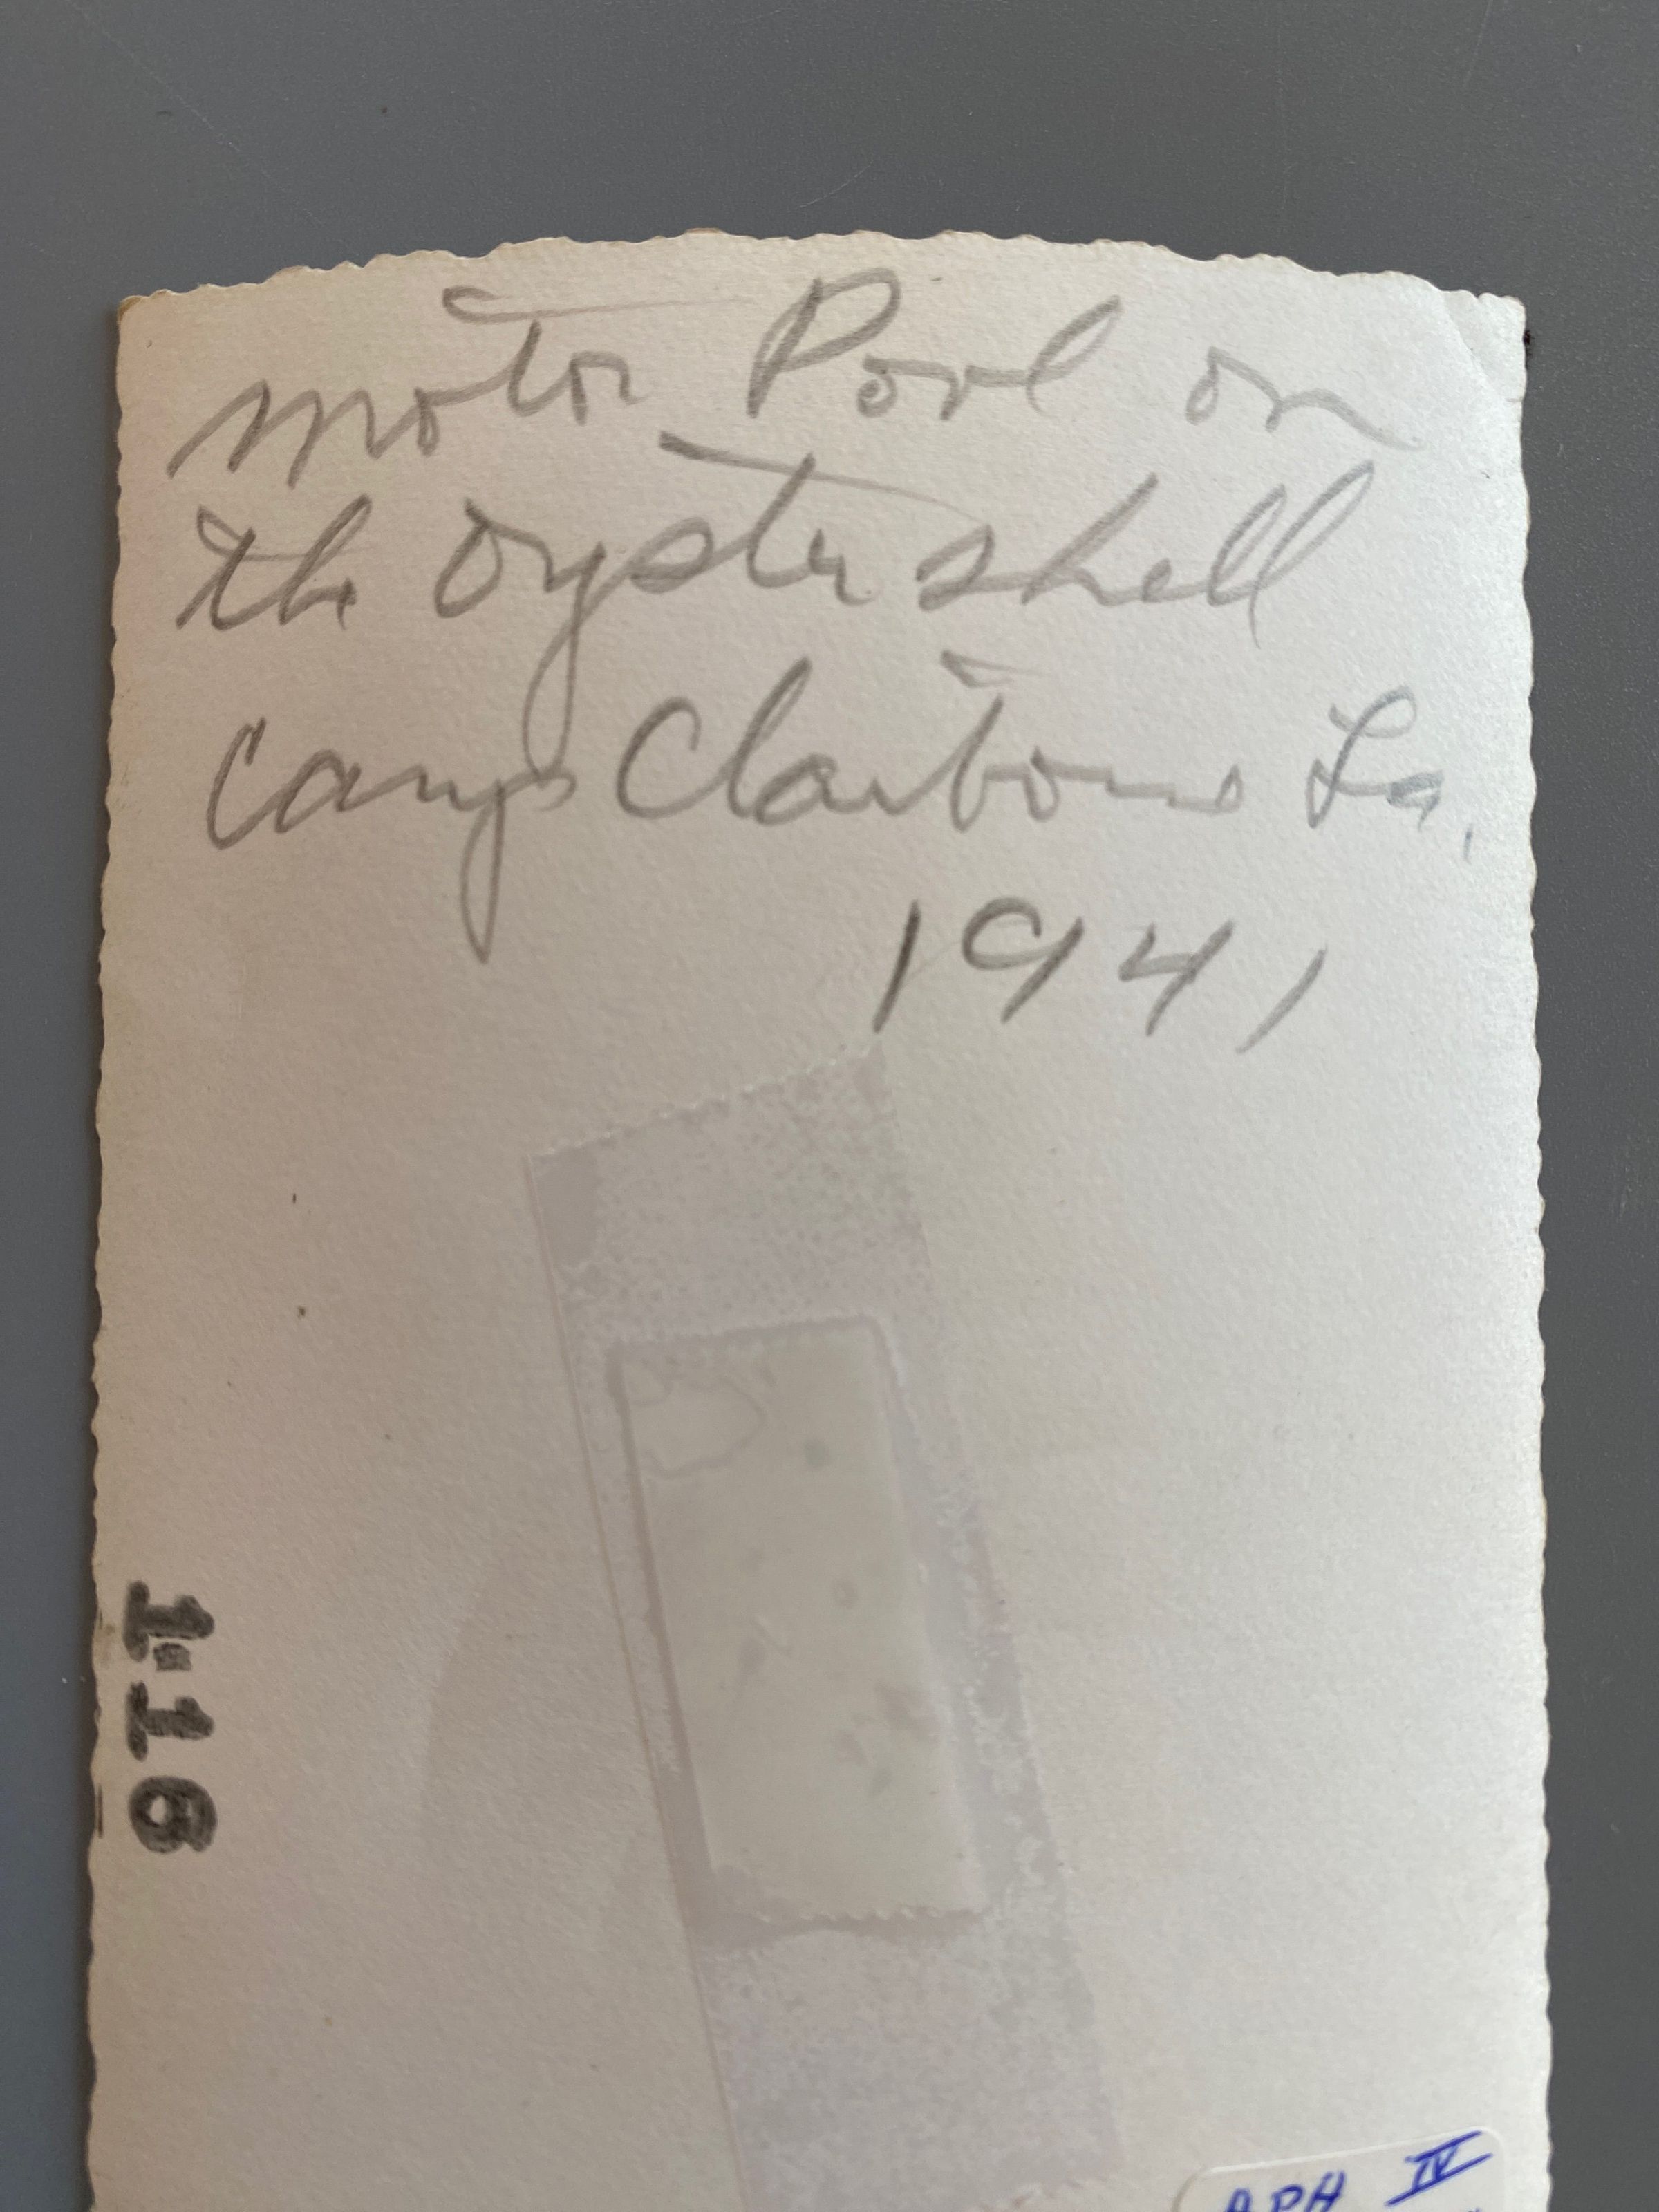 Motor Pool on
the Oyster shell
Camp Claiborne La.
1941
116
APH IV